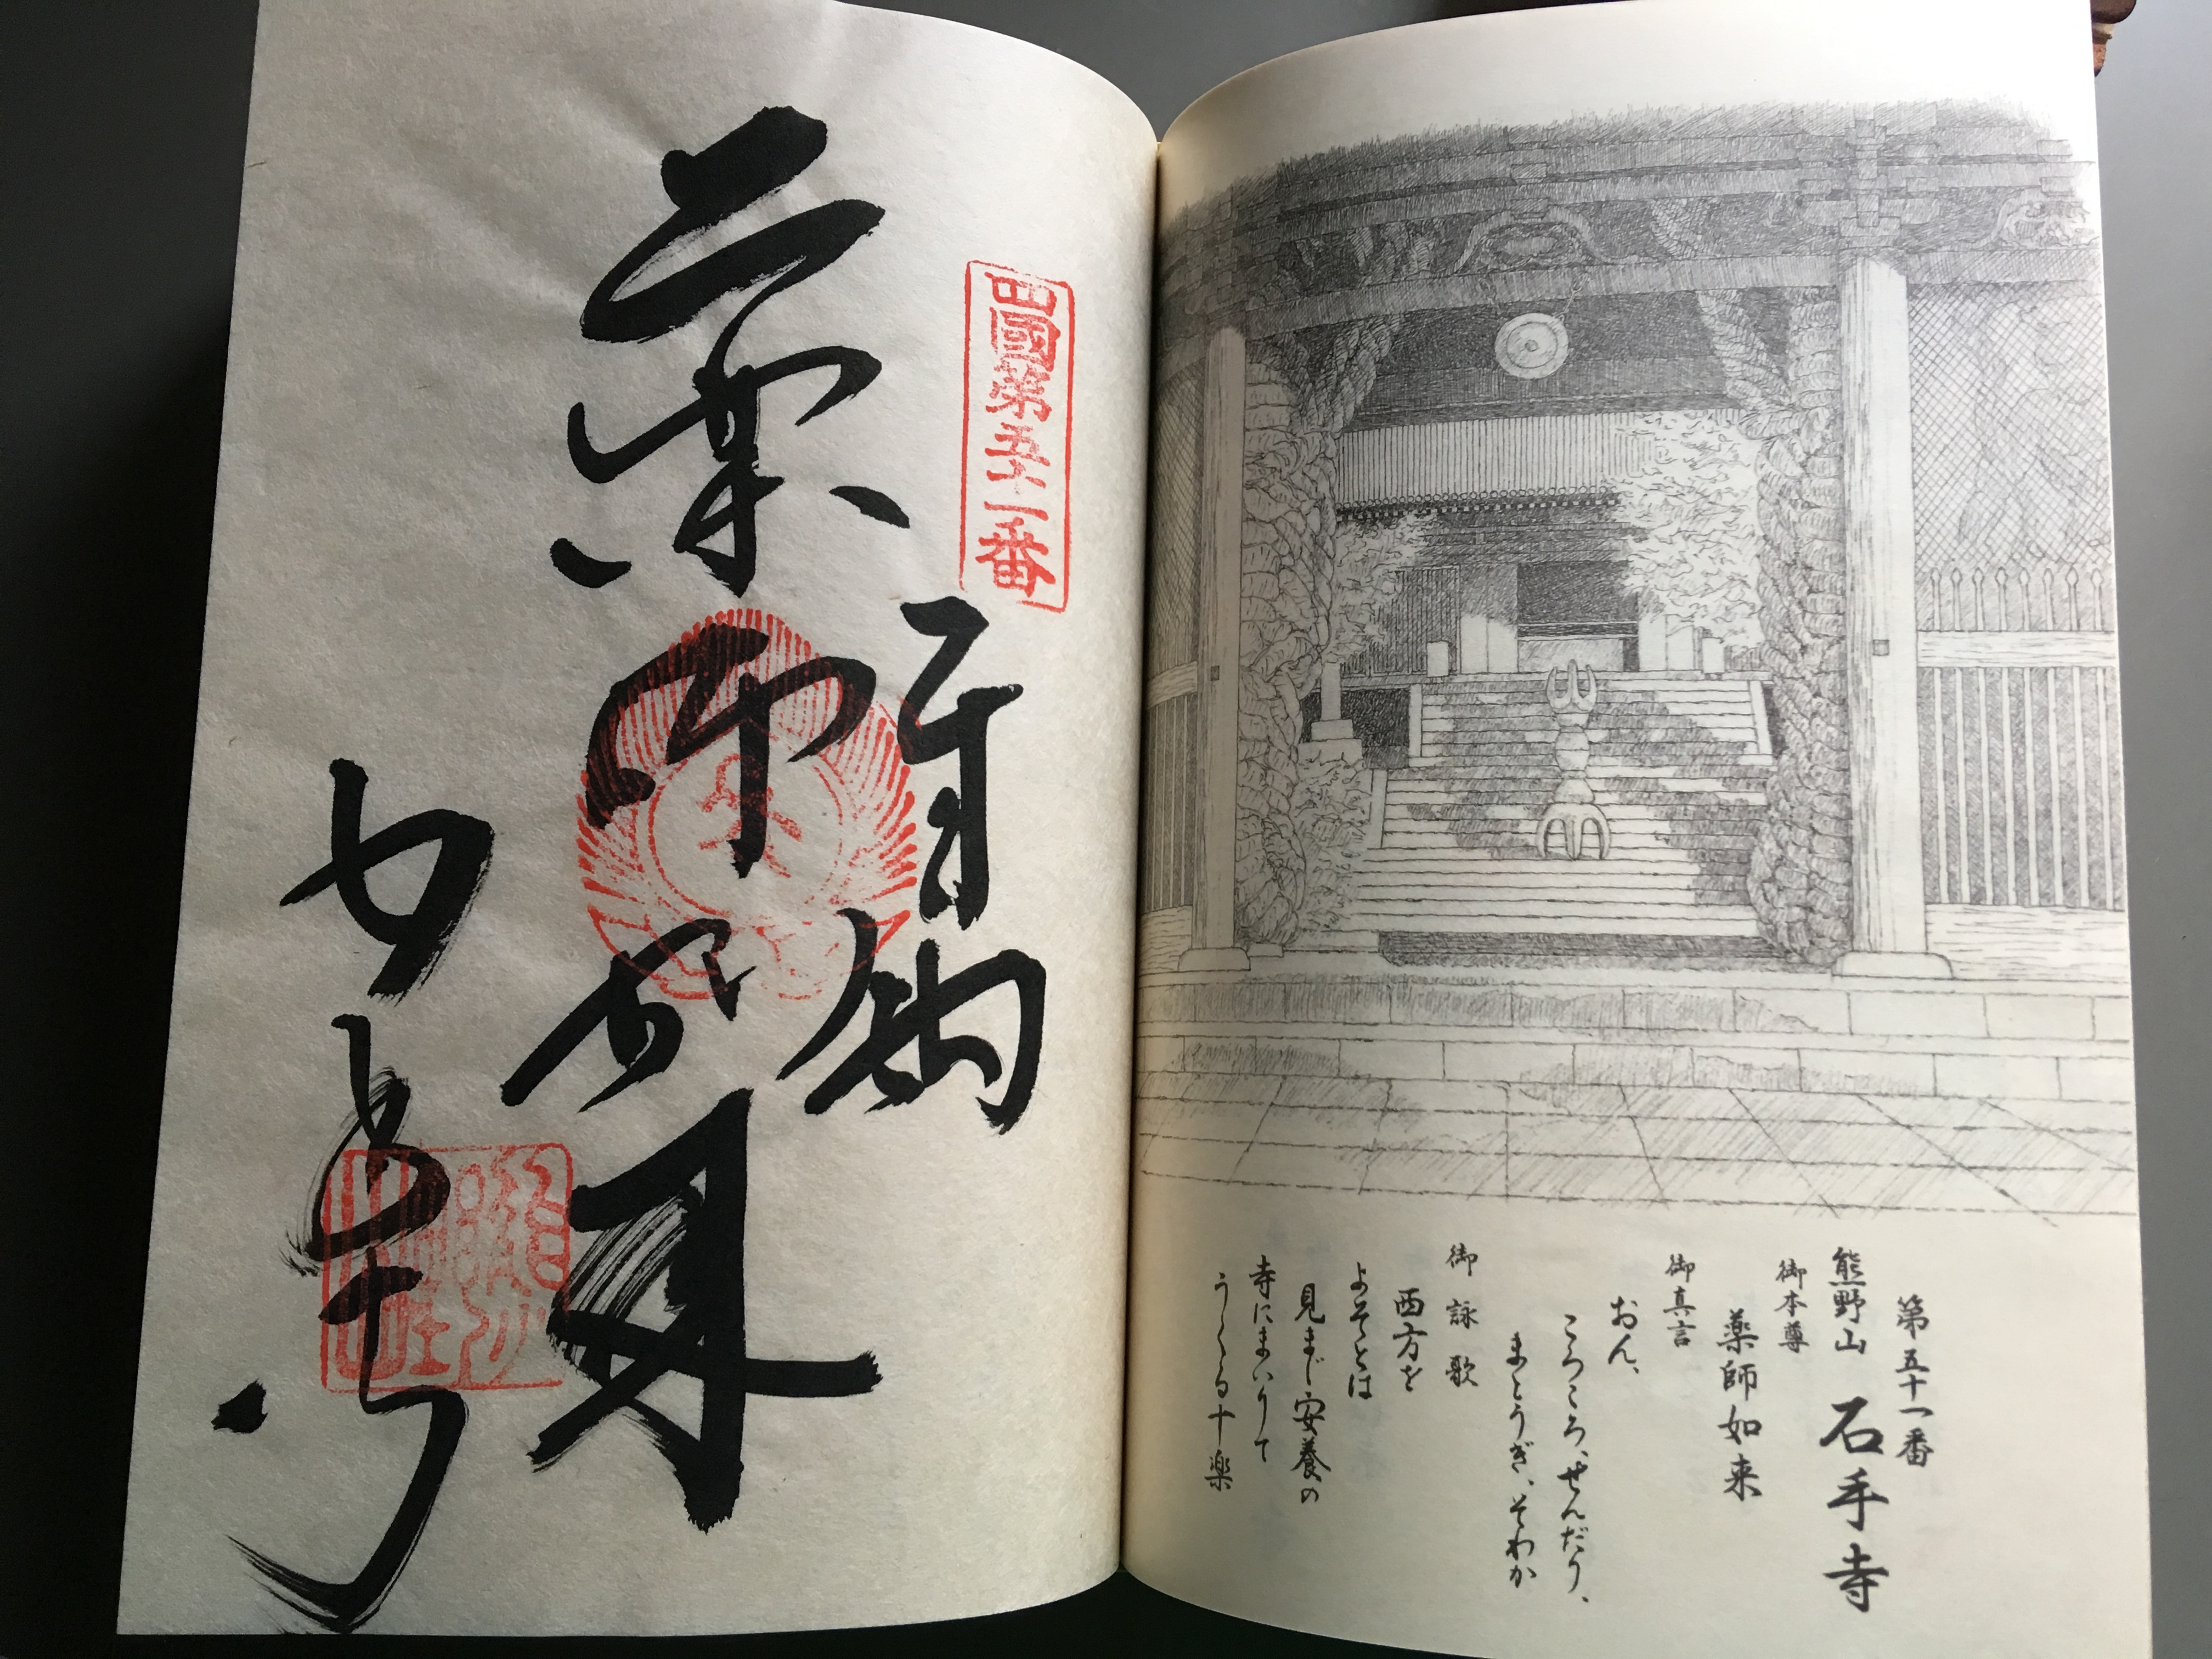 第五十一番
熊野山 石手寺
御本尊
薬師如来
御真言
おん、
ころころ、せんだり、
まとうぎ、そわか
御詠歌
西方を
よそとは
見まじ安養の
寺にまいりて
うくる十楽
四國第五十一番
奉納
薬師如来
石手寺